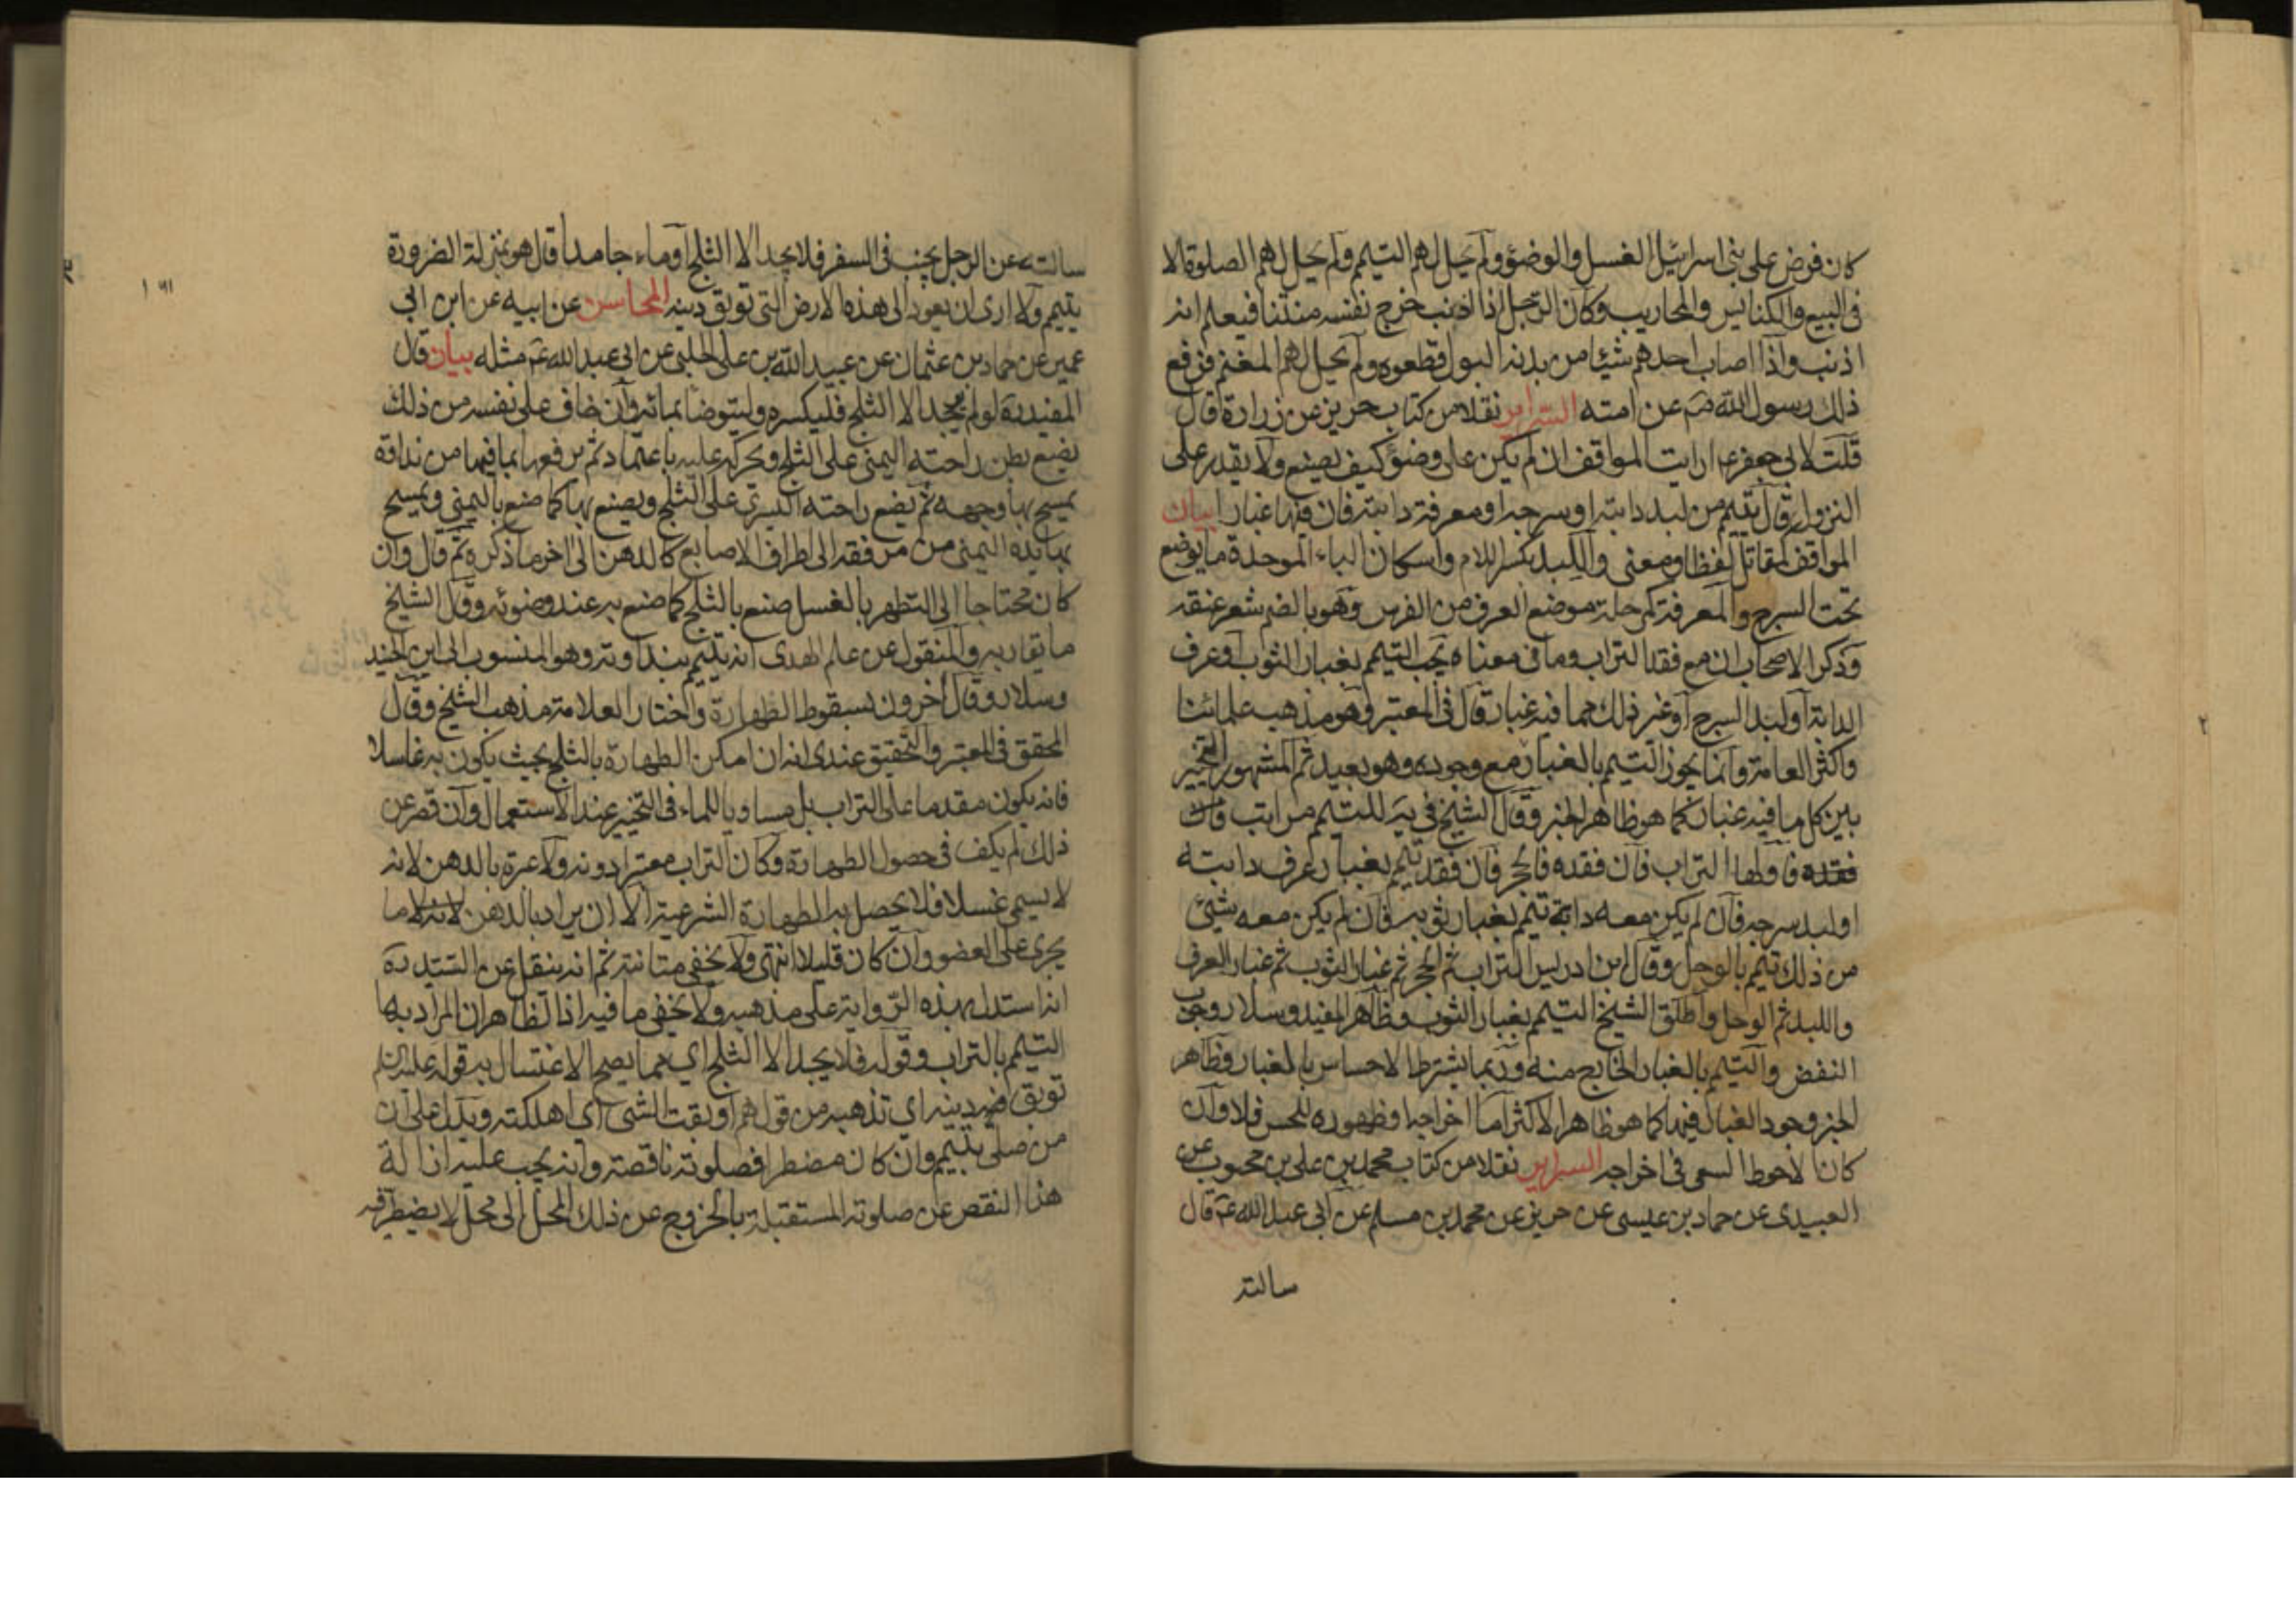 كان فرض على بنى اسرائيل الغسل والوضؤ ولم يحل لهم التيمم ولم يحل لهم الصلوة الا
فى البيع والكنايس والمحاريب وكان الرجل اذا اذنب خرج نفسه منتنا فيعلم انه
اذنب واذا اصاب احدهم شيئا من بدنه البول قطعوه ولم يحل لهم المغنم فرفع
ذلك رسول الله ص عن امته السرائر نقلا من كتاب حريز عن زرارة قال
قلت لابى جعفر ع ارايت المواقف ان لم يكن على وضؤ كيف يصنع ولا يقدر على
النزول قال تيمم من لبد دابته او سرجه او معرفة دابته فان فيها غبارا بيان
المواقف كمقاتل لفظا ومعنى واللبد بكسر اللام واسكان الباء الموحدة ما يوضع
تحت السرج والمعرفة كمرحلة موضع العرف من الفرس وهو بالضم شعر عنقه
وذكر الاصحاب ان مع فقد التراب وما فى معناه يجب التيمم بغبار الثوب او عرف
الدابة او لبد السرج او غير ذلك مما فيه غبار قال فى المعتبر وهو مذهب علمائنا
واكثر العامة وانما يجوز التيمم بالغبار مع وجوده وهو بعيد ثم المشهور التخيير
بين كل ما فيه غبار كما هو ظاهر الخبر وقال الشيخ فى يه للتيمم مراتب فان
فقده فاولها التراب فان فقده فالحجر فان فقد تيمم بغبار عرف دابته
او لبد سرجه فان لم يكن معه دابة تيمم بغبار ثوبه فان لم يكن معه شئ
من ذلك تيمم بالوحل وقال ابن ادريس التراب ثم الحجر ثم غبار الثوب ثم غبار العرف
واللبد ثم الوحل واطلق الشيخ التيمم بغبار الثوب وظاهر المفيد وسلار وجوب
النفض والتيمم بالغبار الخارج منه وربما يشترط الاحساس بالغبار وظاهر
الخبر وجود الغبار فيها كما هو ظاهر الاكثر اما اخراجه وظهوره للحس فلا وان
كان الاحوط السعى فى اخراجه السرائر نقلا من كتاب محمد بن على بن محبوب عن
العبيدى عن حماد بن عيسى عن حريز عن محمد بن مسلم عن ابى عبد الله ع قال
سالته
١٩١
سالته عن الرجل يجنب فى السفر فلا يجد الا الثلج او ماء جامدا قال هو بمنزلة الضرورة
يتيمم ولا ارى ان يعود الى هذه الارض التى توبق دينه المحاسن عن ابيه عن ابن ابى
عمير عن حماد بن عثمان عن عبيد الله بن على الحلبى عن ابى عبد الله ع مثله بيان قال
المفيد ره لو لم يجد الا الثلج فليكسره وليتوضا بمائه وان خاف على نفسه من ذلك
يضع بطن راحته اليمنى على الثلج ويحركه عليه باعتماد ثم يرفعها بما فيها من نداوة
يمسح بها وجهه ثم يضع راحته اليسرى على الثلج ويصنع بها كما صنع باليمنى ويمسح
بها يده اليمنى من مرفقه الى اطراف الاصابع كالدهن الى اخر ما ذكره ثم قال وان
كان محتاجا الى التطهر بالغسل صنع بالثلج كما صنع به عند وضوئه وقال الشيخ
ما يقاربه والمنقول عن علم الهدى انه يتيمم بنداوته وهو المنسوب الى ابن الجنيد
وسلار وقال اخرون بسقوط الطهارة واختار العلامة مذهب الشيخ وقال
المحقق فى المعتبر والتحقيق عندى انه ان امكن الطهارة بالثلج بحيث يكون به غاسلا
فانه يكون مقدما على التراب بل مساويا للماء فى التخيير عند الاستعمال وان قصر عن
ذلك لم يكف فى حصول الطهارة وكان التراب معتبرا دونه ولا عبرة بالدهن لانه
لا يسمى غسلا فلا يحصل به الطهارة الشرعية الا ان يراد بالدهن لانه لا ما
يجرى على العضو وان كان قليلا انتهى ولا يخفى متانته ثم انه ينقل عن السيد ره
انه استدل بهذه الرواية على مذهبه ولا يخفى ما فيه اذ الظاهر ان المراد بها
التيمم بالتراب وقوله فلا يجد الا الثلج اى مما يصح الاغتسال به قوله عليه السلام
توبق دينه اى تذهبه من قولهم اوبقت الشئ اى اهلكته ويدل على ان
من صلى بتيمم وان كان مضطرا فصلوته ناقصة وانه يجب عليه ازالة
هذا النقص عن صلوته المستقبلة بالخروج عن ذلك المحل الى محل لا يضطر فيه